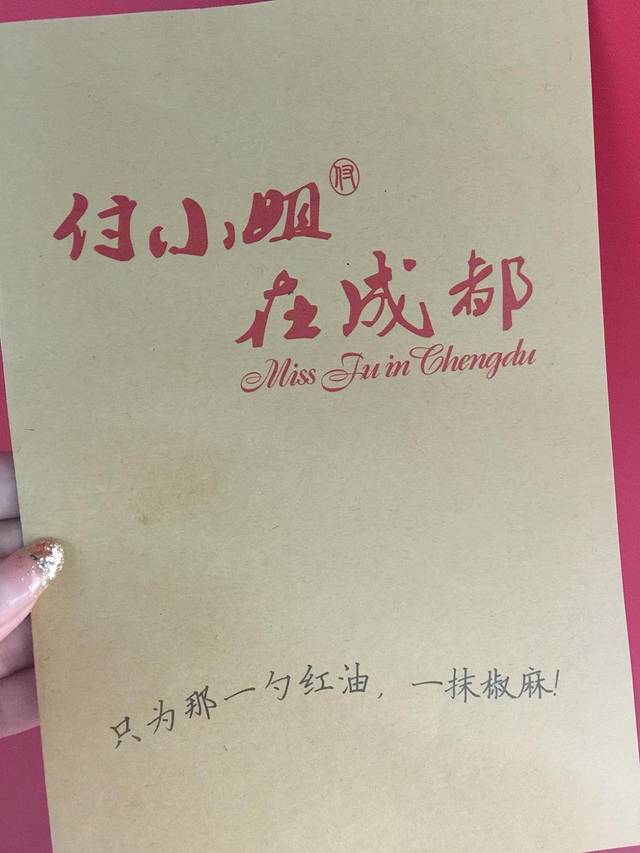 付小姐
付
在成都
Miss Fu in Chengdu
只为那一勺红油，一抹椒麻!